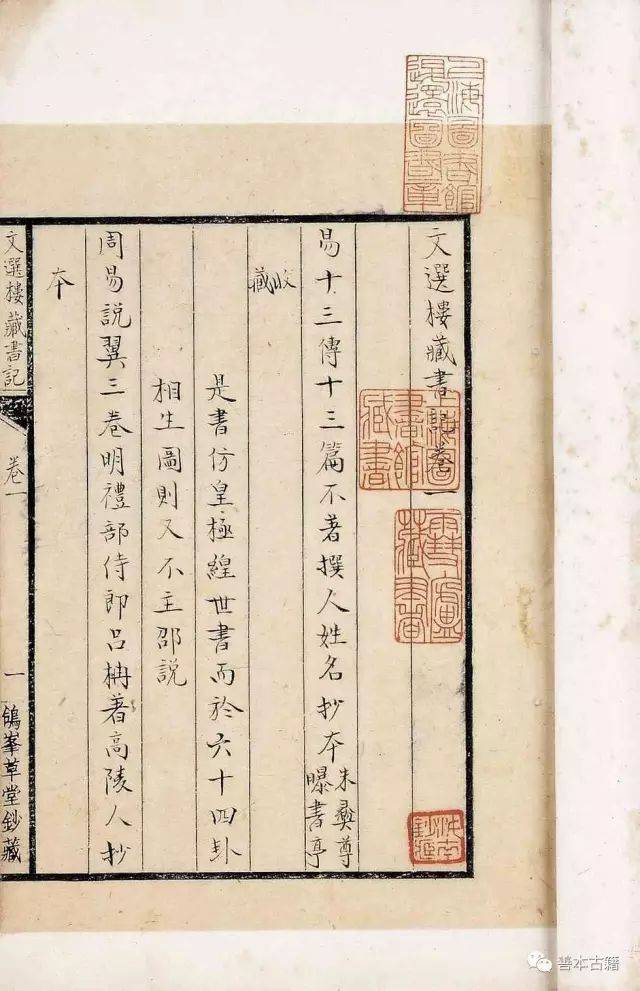 上海圖書館
退還圖書章
文選樓藏書記卷一
藏書
易十三傳十三篇不著撰人姓名抄本朱彝尊
曝書亭
收
藏
是書仿皇極經世書而於六十四卦
相生圖則又不主邵說
周易說翼三卷明禮部侍郎呂柟著高陵人抄
本
文選樓藏書記
卷一
一
鴿峯草堂鈔藏
善本古籍